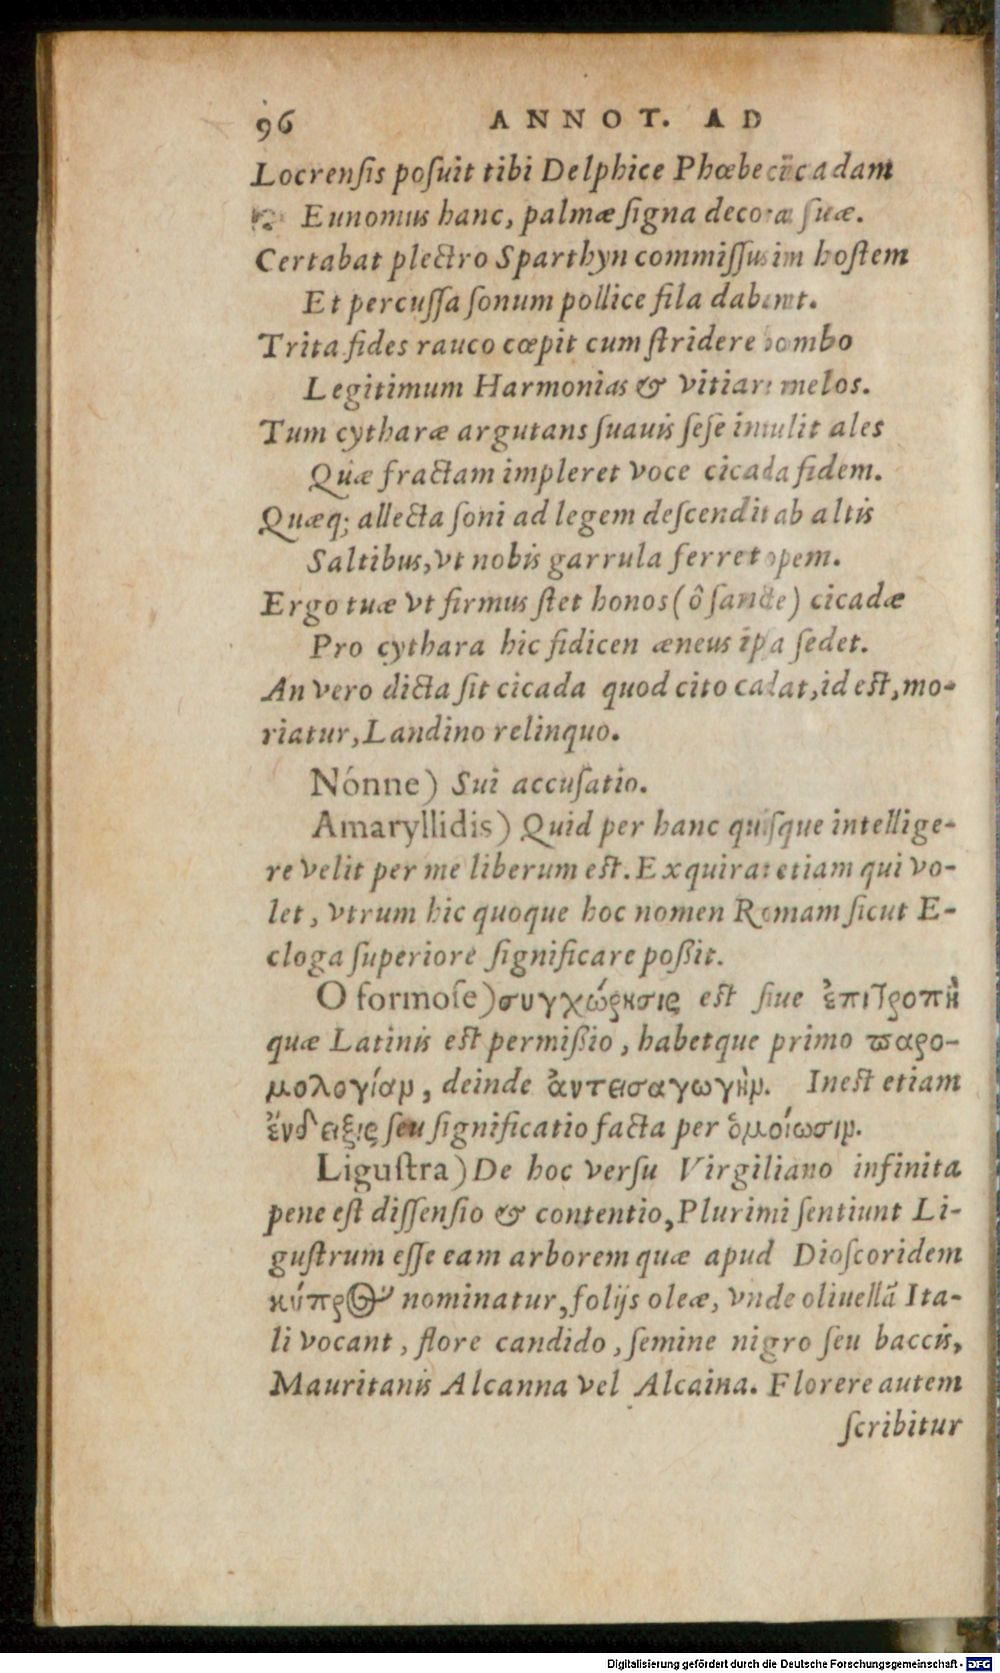 96 ANNOT. AD
Locrenſis poſuit tibi Delphice Phœbe cicadam
Eunomus hanc, palmæ ſigna decora ſuæ.
Certabat plectro Sparthyn commiſſus in hoſtem
Et percuſſa ſonum pollice fila dabant.
Trita fides rauco cœpit cum ſtridere bombo
Legitimum Harmonias & vitiare melos.
Tum cytharæ argutans ſuauis ſeſe intulit ales
Quæ fractam impleret voce cicada fidem.
Quæq; allecta ſoni ad legem deſcendit ab altis
Saltibus, vt nobis garrula ferret opem.
Ergo tuæ vt firmus ſtet honos (ô ſancte) cicadæ
Pro cythara hic fidicen æneus ipſa ſedet.
An vero dicta ſit cicada quod cito cadat, id eſt, mo-
riatur, Landino relinquo.
Nónne) Sui accuſatio.
Amaryllidis) Quid per hanc quiſque intellige-
re velit per me liberum eſt. Exquirat etiam qui vo-
let, vtrum hic quoque hoc nomen Romam ſicut E-
cloga ſuperiore ſignificare poßit.
O formoſe) συγχώρησις eſt ſiue ἐπιτροπὴ
quæ Latinis eſt permißio, habetque primo παρο-
μολογίαν, deinde ἀντεισαγωγὴν. Ineſt etiam
ἔνδειξις ſeu ſignificatio facta per ὁμοίωσιν.
Liguſtra) De hoc verſu Virgiliano infinita
pene eſt diſſenſio & contentio, Plurimi ſentiunt Li-
guſtrum eſſe eam arborem quæ apud Dioſcoridem
κύπρος nominatur, folijs oleæ, vnde oliuellā Ita-
li vocant, flore candido, ſemine nigro ſeu baccis,
Mauritanis Alcanna vel Alcaina. Florere autem
ſcribitur
Digitalisierung gefördert durch die Deutsche Forschungsgemeinschaft - DFG